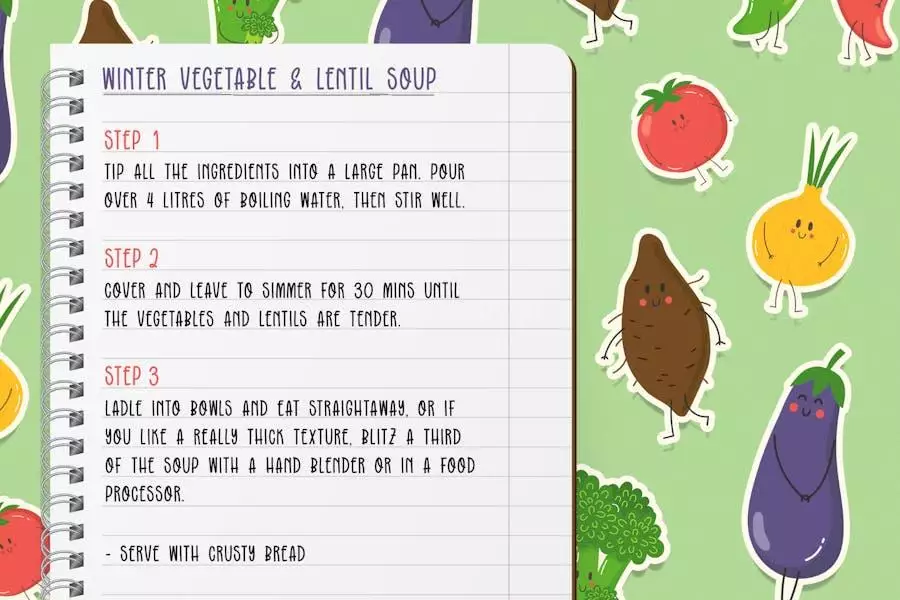 WINTER VEGETABLE & LENTIL SOUP
STEP 1
TIP ALL THE INGREDIENTS INTO A LARGE PAN. POUR
OVER 4 LITRES OF BOILING WATER, THEN STIR WELL.
STEP 2
COVER AND LEAVE TO SIMMER FOR 30 MINS UNTIL
THE VEGETABLES AND LENTILS ARE TENDER.
STEP 3
LADLE INTO BOWLS AND EAT STRAIGHTAWAY, OR IF
YOU LIKE A REALLY THICK TEXTURE, BLITZ A THIRD
OF THE SOUP WITH A HAND BLENDER OR IN A FOOD
PROCESSOR.
- SERVE WITH CRUSTY BREAD